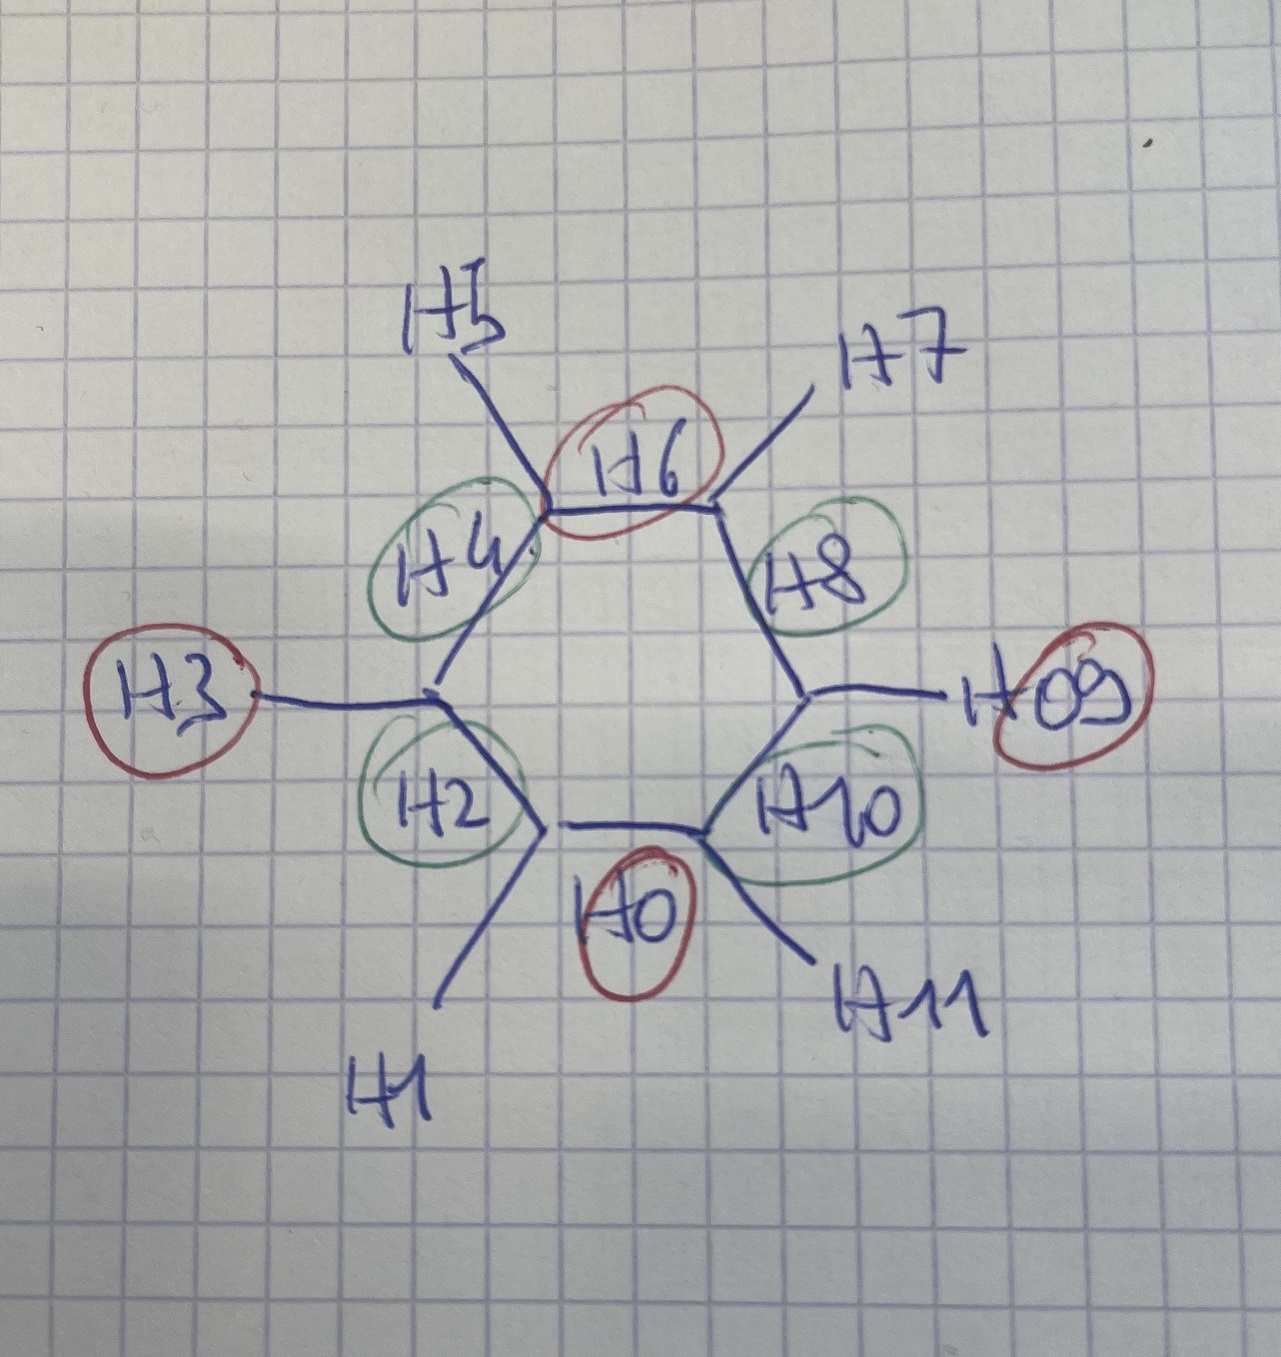 H5
H7
H6
H4
H8
H3
H09
H2
H10
H0
H11
H1